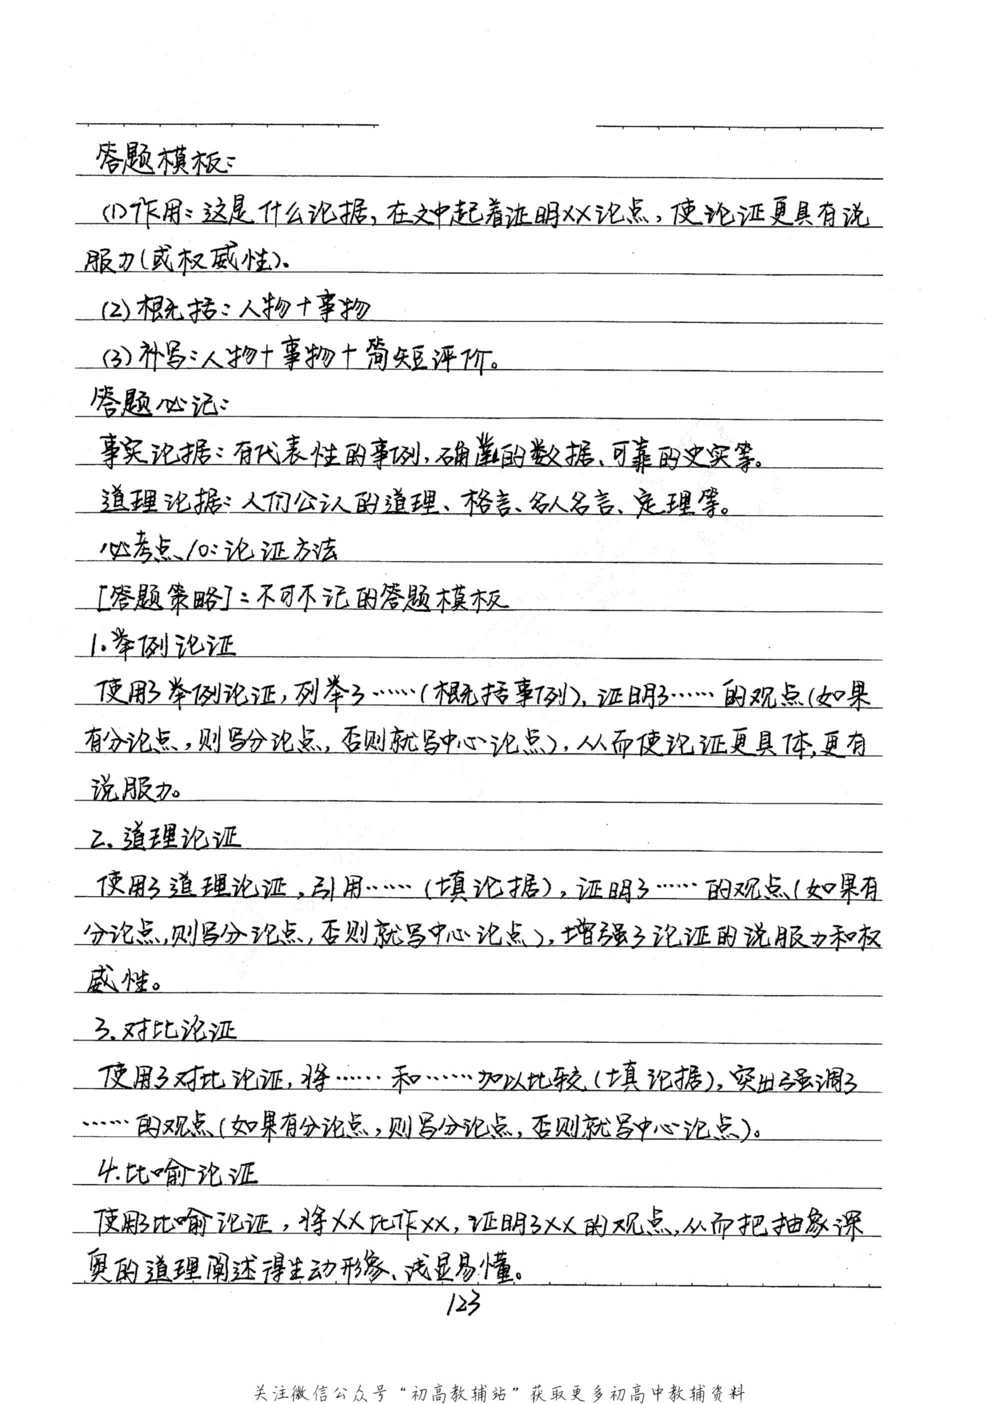 答题模板:
(1)作用:这是什么论据,在文中起着证明XX论点,使论证更具有说
服力(或权威性)。
(2)概括:人物+事物
(3)补写:人物+事物+简短评价。
答题必记:
事实论据:有代表性的事例、确凿的数据、可靠的史实等。
道理论据:人们公认的道理、格言、名人名言、定理等。
必考点10:论证方法
[答题策略]:不可不记的答题模板
1.举例论证
使用了举例论证,列举了……(概括事例),证明了……的观点(如果
有分论点,则写分论点,否则就写中心论点),从而使论证更具体,更有
说服力。
2.道理论证
使用了道理论证,引用……(填论据),证明了……的观点(如果有
分论点,则写分论点,否则就写中心论点),增强了论证的说服力和权
威性。
3.对比论证
使用了对比论证,将……和……加以比较(填论据),突出强调了
……的观点(如果有分论点,则写分论点,否则就写中心论点)。
4.比喻论证
使用了比喻论证,将XX比作XX,证明了XX的观点,从而把抽象深
奥的道理阐述得生动形象、浅显易懂。
123
关注微信公众号“初高教辅站”获取更多初高中教辅资料